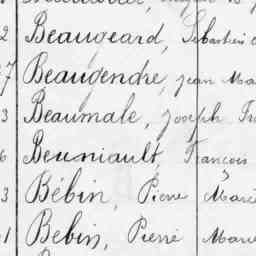 2 Beaugeard, Sébastien
7 Beaugendre, jean Ma
3 Beaumale, joseph Fra
6 Beuniault, François
3 Bébin, Pierre Marie
1 Bebin, Pierre Marie